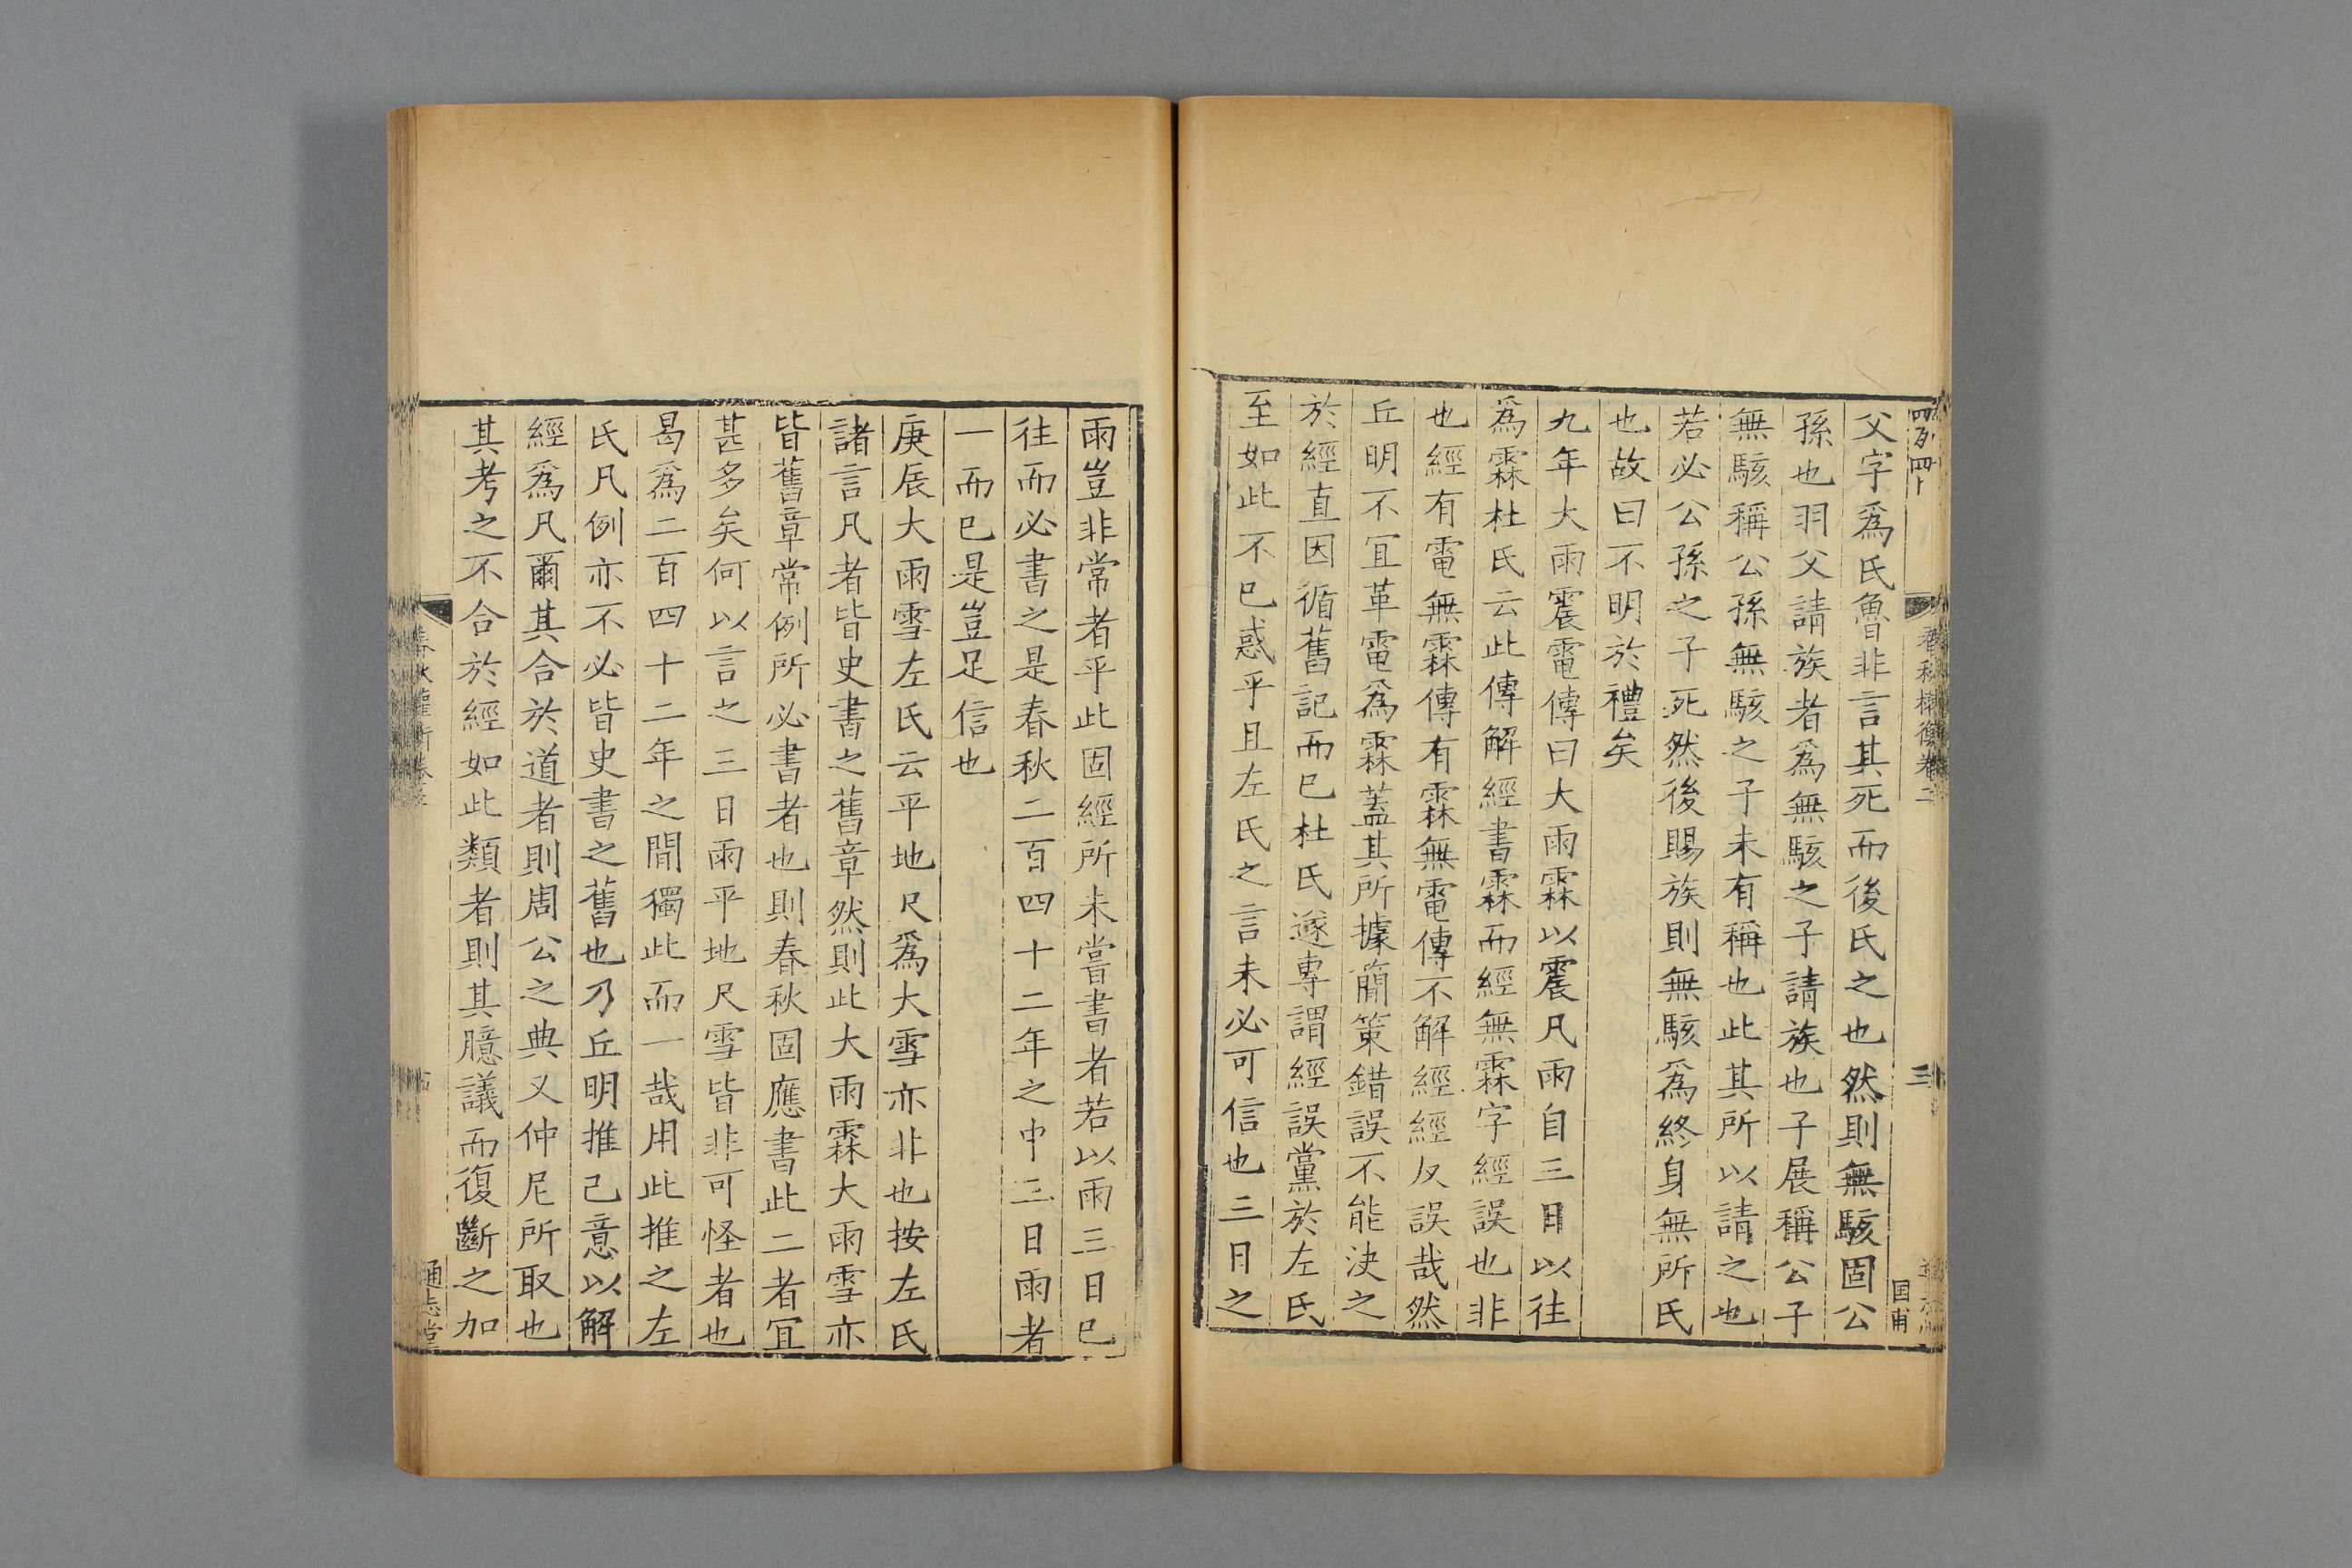 父字爲氏魯非言其死而後氏之也然則無駭固公
孫也羽父請族者爲無駭之子請族也子展稱公子
無駭稱公孫無駭之子未有稱也此其所以請之也
若必公孫之子死然後賜族則無駭爲終身無所氏
也故曰不明於禮矣
九年大雨震電傳曰大雨霖以震凡雨自三日以往
爲霖杜氏云此傳解經書霖而經無霖字經誤也非
也經有電無霖傳有霖無電傳不解經經反誤哉然
丘明不宜革電爲霖蓋其所據簡策錯誤不能決之
於經直因循舊記而已杜氏遂專謂經誤黨於左氏
至如此不已惑乎且左氏之言未必可信也三日之
雨豈非常者乎此固經所未嘗書者若以雨三日已
往而必書之是春秋二百四十二年之中三日雨者
一而已是豈足信也
庚辰大雨雪左氏云平地尺爲大雪亦非也按左氏
諸言凡者皆史書之舊章然則此大雨霖大雨雪亦
皆舊章常例所必書者也則春秋固應書此二者宜
甚多矣何以言之三日雨平地尺雪皆非可怪者也
曷爲二百四十二年之間獨此而一哉用此推之左
氏凡例亦不必皆史書之舊也乃丘明推己意以解
經爲凡爾其合於道者則周公之典又仲尼所取也
其考之不合於經如此類者則其臆議而復斷之加
通志堂